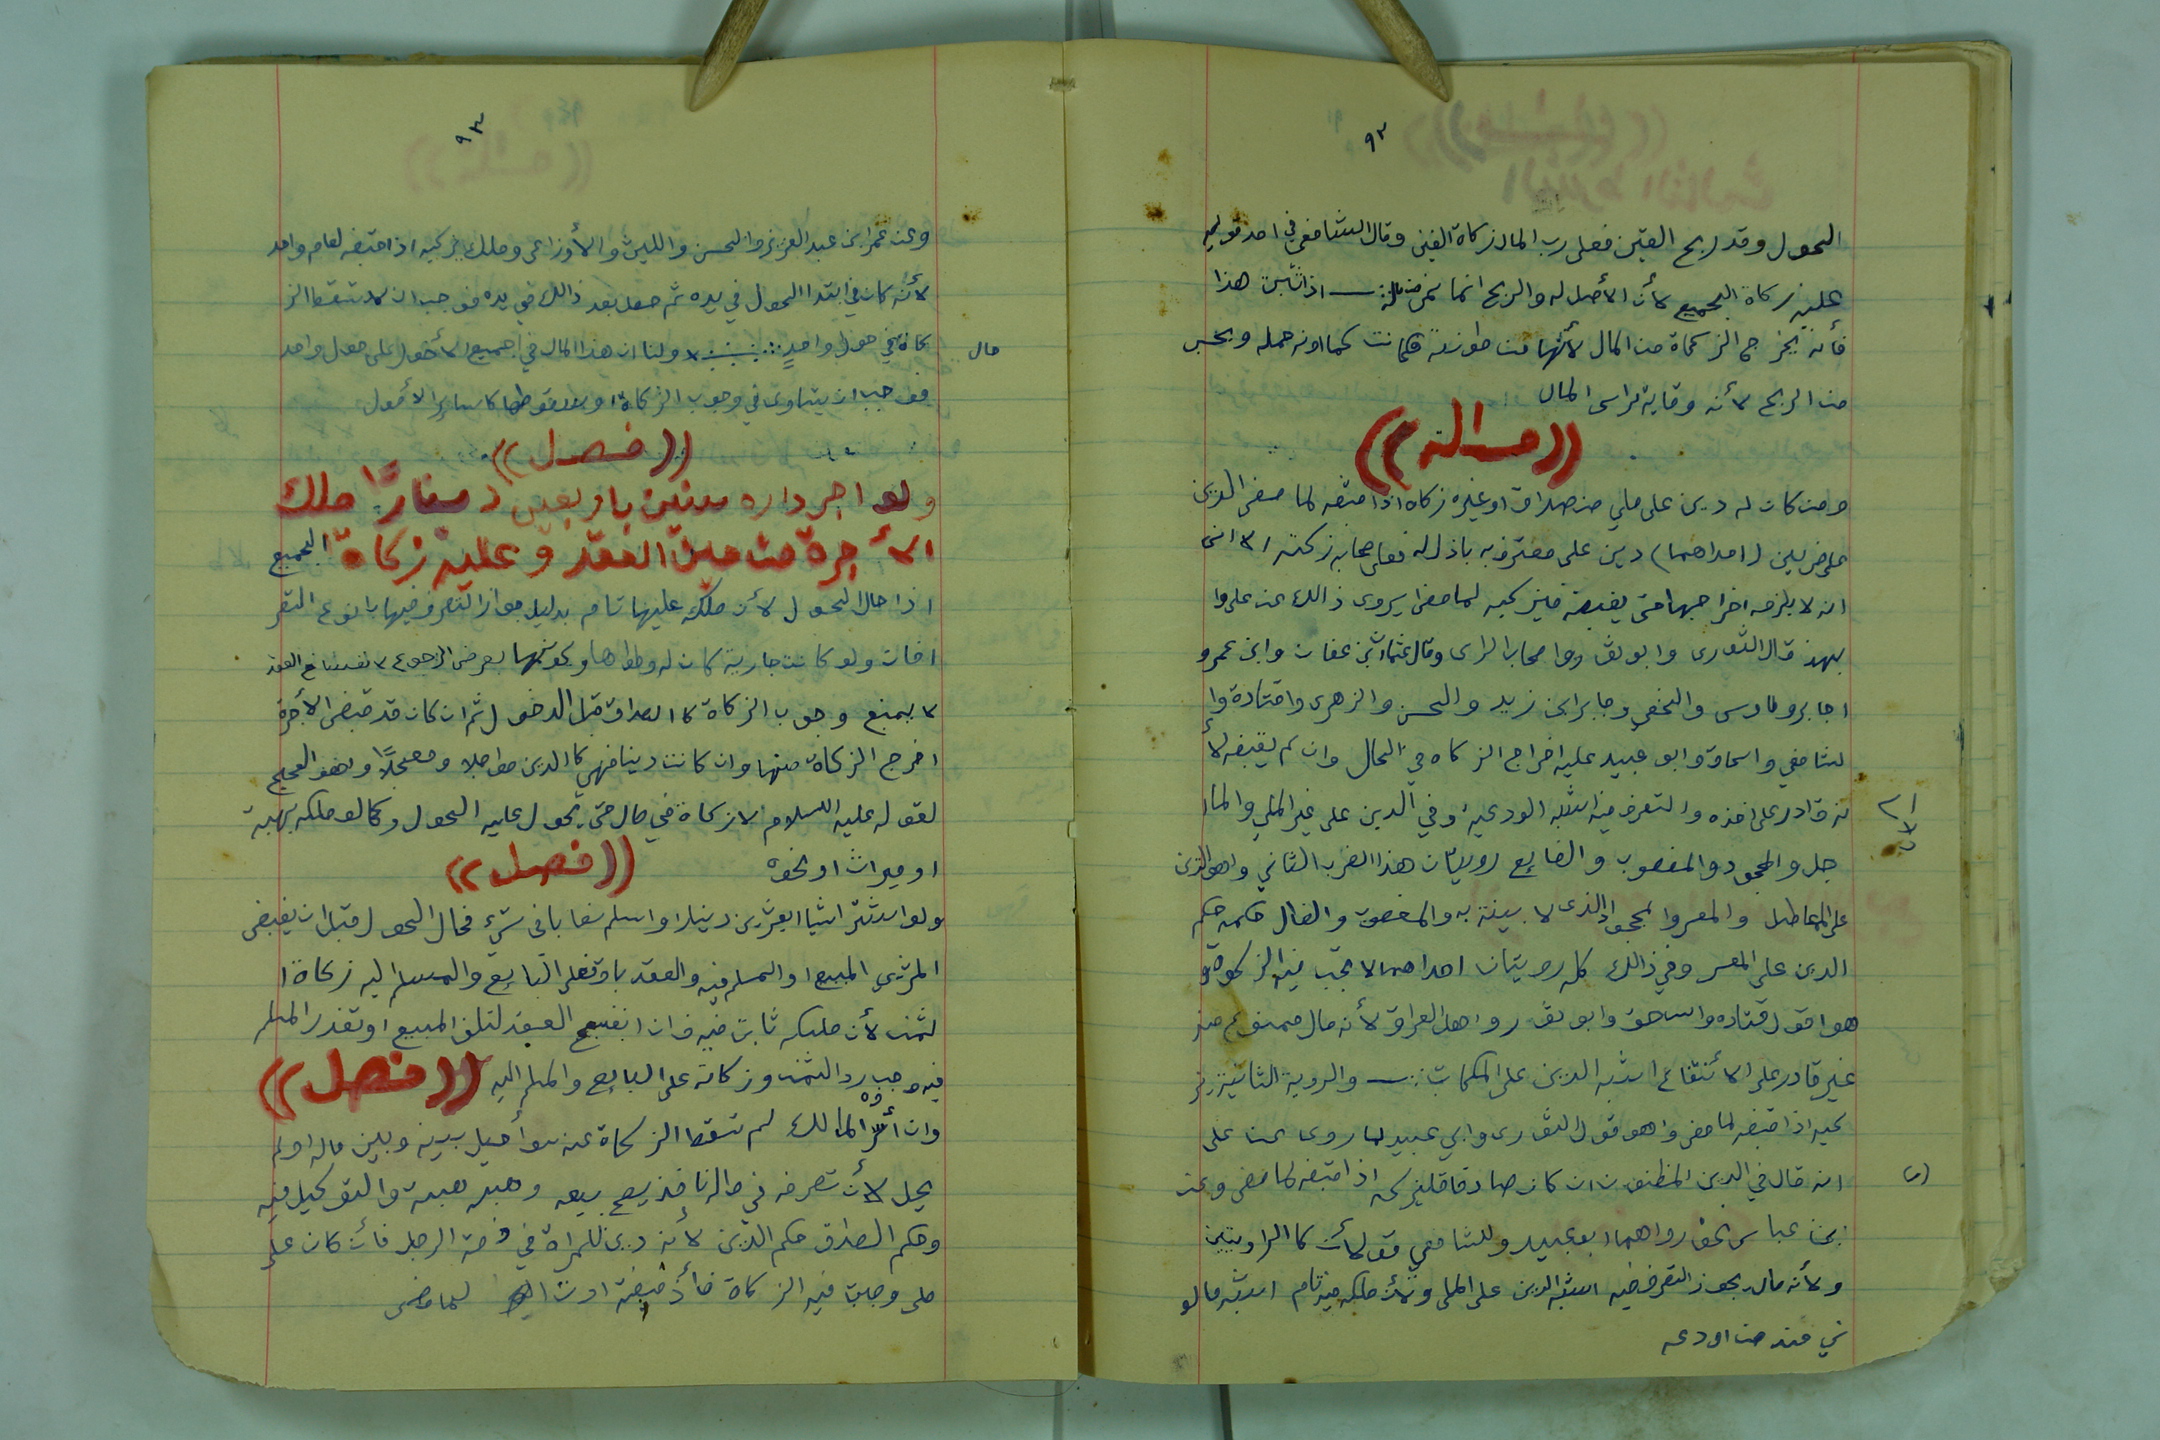 ٩٢
الحول وقد ربح الفين فعلى رب المال زكاة الفين وقال الشافعي في احد قوليه
عليه زكاة الجميع لأن الأصل له والربح انما نمى من ماله اذا ثابت هذا
فأنه يخرج الزكاة من المال لأنها من مؤنته فكانت كمأونه حمله ويحسب
من الربح لأنه وقاية لراس المال
((مسالة))
ومن كان له دين على ملي من صداق او غيره زكاه اذا قبضه لما مضى الدين
على ضربين (احداهما) دين على معترف به باذل له فعلى صحابه زكته الا انى
انه لا يلزمه اخراجها حتى يقبضه فيزكيه لما مضى يروى ذالك عن على وا
بهذ قال الثورى وابو ثور وا صحاب الراى وقال عثمان بن عفان وابن عمرو
ا جابر وطاوس والنخعي وجابر ابن زيد والحسن والزهرى واقتادة وا
لشافعي واسحاق وابو عبيد عليه اخراج الزكاه في الحال وان لم يقبضه لأ
نه قادر على اخذه والتصرف فيه اشبه الودعية وفي الدين على غير الملي والما ا
جل والمجحود والمغصوب والضايع روايتان هذا الضرب الثاني واهو الذين
على المماطل والمعسر وا لمجحود الذى لا بينة به والمغصوب والضال حكمه حكم
الدين على المعسر وفي ذالك كله رويتان احداهما لا تجب فيه الزكوة و
هوا قول قتاده واسحق وابو ثور واهل العراق لأنه مال ممنوع منه
غير قادر على الأنتفاع اشبه الدين على المكاتب والروية الثانية يز
كيه اذا قبضه لما مضى واهو قول الثورى وابي عبيد لما روى عن على
انه قال في الدين المظنون ان كان صادقا فليزكه اذا قبضه لما مضى وعن
بن عباس نحو رواهما ابو عبيد وللشافعي قولأن كا الراويتين
ولأنه مال يجوز التصرف فيه اشبه الدين على الملي ولأن ملكه فيه تام اشبه ما لو
ني منه من اودعه
٩٣
وعن عمر ابن عبد العزيز والحسن والليث والأوزاعى وملك يزكيه اذا قبضه لعام واحد
لأنه كان في ابتدا الحول في يده ثم حصل بعد ذالك في يده فوجب ان لا تسقط الز
كاة في حول واحدٍ ولنا ان هذا المال في اجميع الأحول على حول واحد
مال
فوجب ان يتاوى في وجوب الزكاة او سقوطها كا ساير الأمول
((فصل))
ولو اجر داره سنين باربعين دينارًا ملك
الأجرة من حين العقد وعليه زكاة الجميع
اذا حال الحول لأن ملكه عليها تام بدليل جواز التصرف فيها بانوع التصر
افات ولو كانت جارية كان له وطواها وكونها بعرض الرجوع لا نفساخ العقد
لا يمنع وجوب الزكاة كا الصداق قبل الدخول ثم ان كان قد قبض الأجرة
اخرج الزكاة منها وان كانت دينا فهي كا الدين مؤاجلا ومعجلًا وهو الصحيح
لقوله عليه السلام لا زكاة في مال حتى يحول عليه الحول وكا لو ملكه بهبة
او ميراث او نحوه
((فصل))
ولو اشتر اشيا ابعشرين دينارا واسلم نصابا في شيء فحال الحول قبل ان يقبض
المشترى المبيع ا والمسلم فيه والعقد باق فعلى البايع والمسلم اليه زكاة ا
لثمن لأن ملكه ثابت فيه فان انفسخ العقد لتلف المبيع او تعذر المسلم
فيه وجب رد الثمن وزكاته على البايع والمسلم اليه
((فصل))
وان أسر المالك لم تسقط الزكاة عنه سوأ حيل بينه وبين ماله اولم
يحل لأن تصرفه في ماله نافذ يصح بيعه وهبه هبة والتوكيل فيه
وحكم الصداق حكم الدين لأنه دين للمراة في ذمة الرجل فأن كان على
ملى وجبت فيه الزكاة فأذ قبضته ادت لما مضى